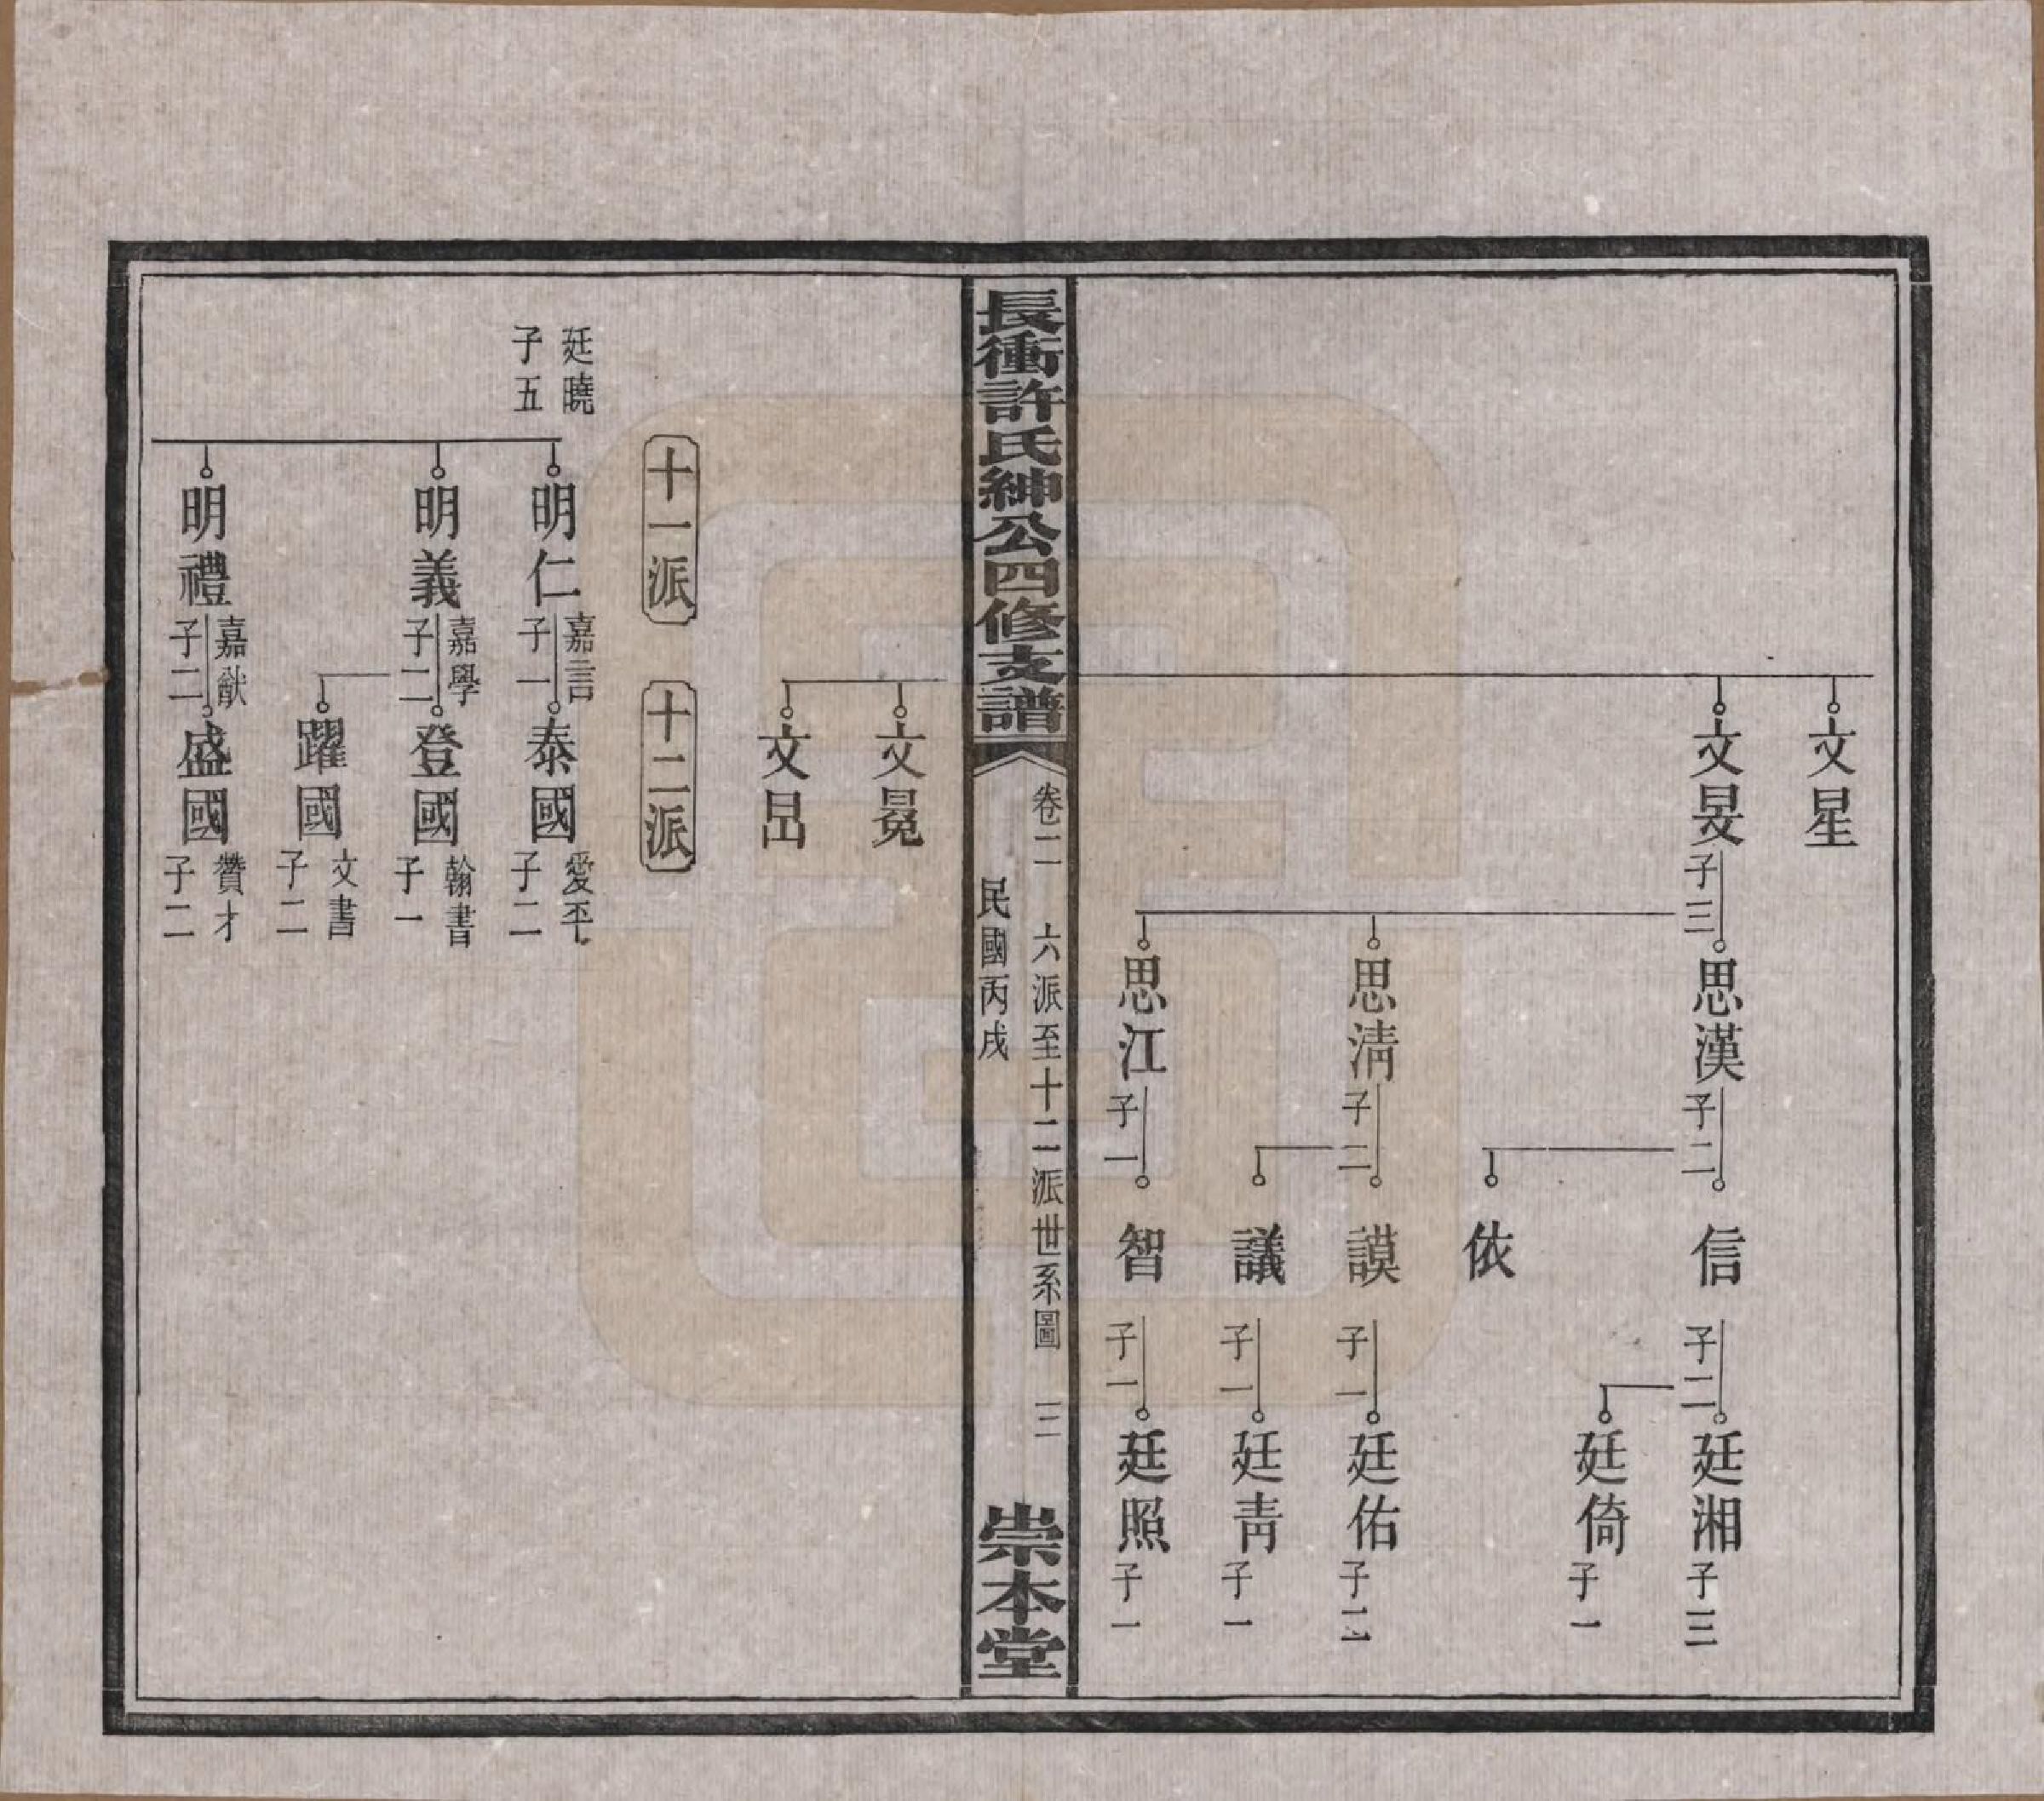 文星
文旻
子三
思漢
子二
信
子二
廷湘
子三
廷倚
子一
依
思清
子二
謨
子一
廷佑
子二
議
子一
廷青
子一
思江
子一
智
子一
廷照
子一
長衝許氏紳公四修支譜
卷二
六派至十二派世系圖
三
民國丙戌
崇本堂
文冕
文昌
十一派
十二派
廷曉
子五
明仁
嘉言
子一
泰國
愛平
子二
明義
嘉學
子二
登國
翰書
子一
躍國
文書
子二
明禮
嘉猷
子二
盛國
贊才
子二